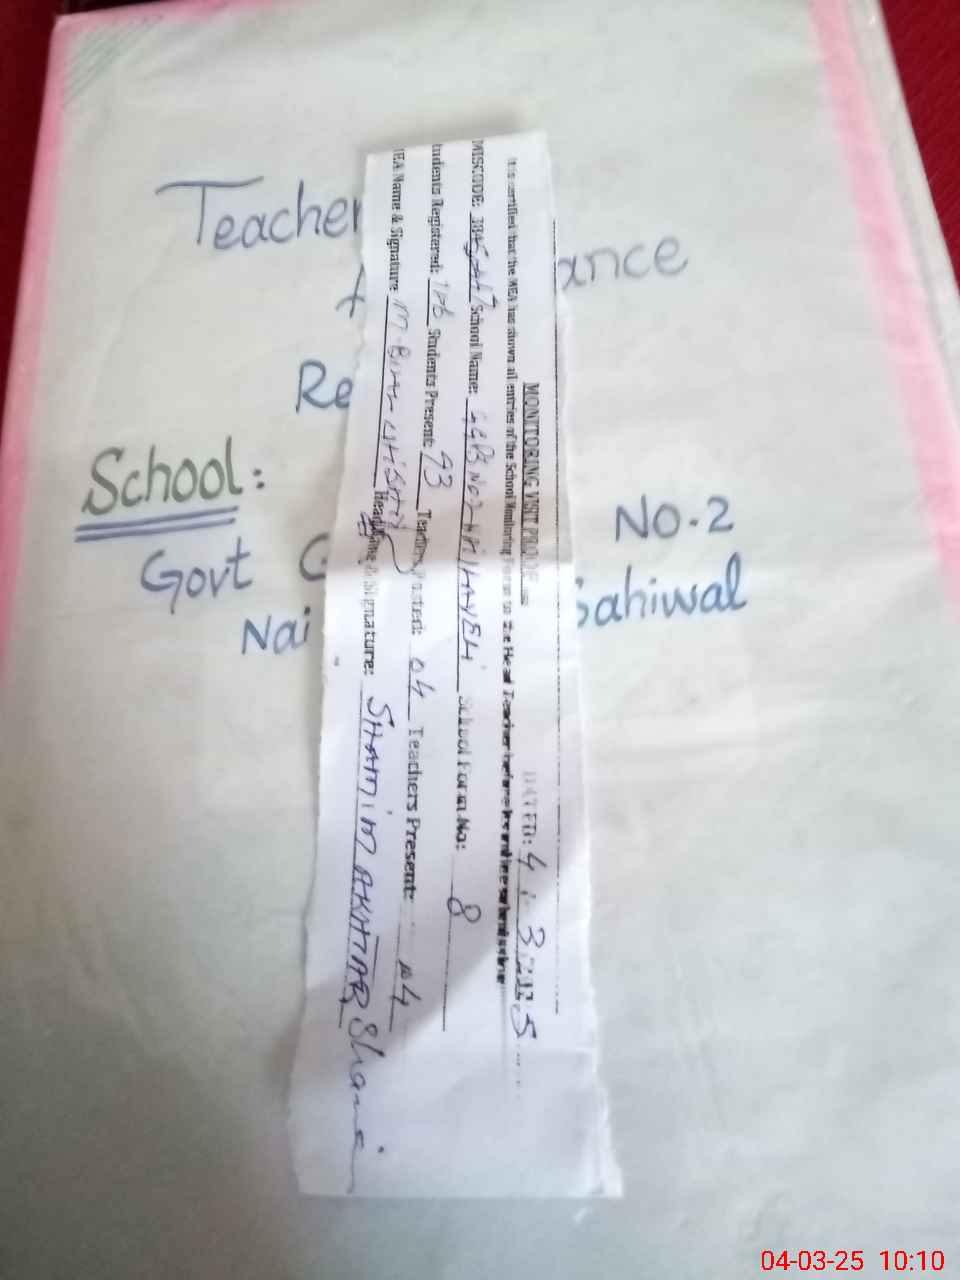 Teacher
ance
Re
School:
Govt G NO.2
Nai Sahiwal
MONITORING VISIT PROOF DATED: 4 / 3 / 2025
It is certified that the MEA has shown all entries of the School Monitoring Form to the Head Teacher before
MISCODE: School Name: School Form No: 8
tudents Registered: Students Present: 93 Teachers Posted: 04 Teachers Present: 04
EA Name & Signature: Head Name & Signature: SHAMIM AKHTAR
04-03-25 10:10